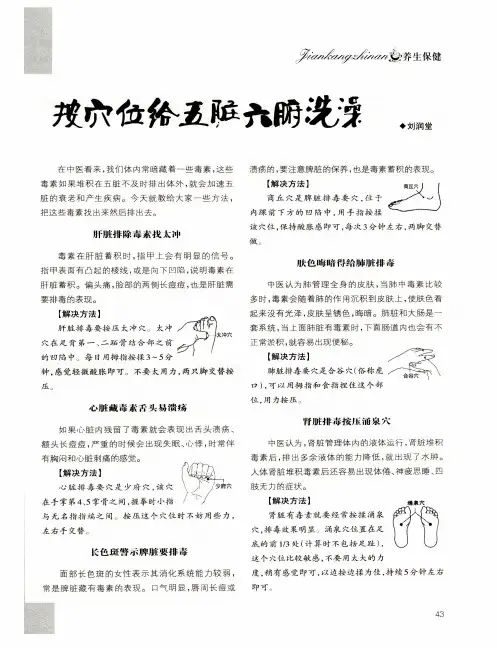 Jiankangzhinan 养生保健
按穴位给五脏六腑洗澡
◆刘润堂
在中医看来,我们体内常暗藏着一些毒素,这些
毒素如果堆积在五脏不及时排出体外,就会加速五
脏的衰老和产生疾病。今天就教给大家一些方法,
把这些毒素找出来然后排出去。
肝脏排除毒素找太冲
毒素在肝脏蓄积时,指甲上会有明显的信号。
指甲表面有凸起的棱线,或是向下凹陷,说明毒素在
肝脏蓄积。偏头痛,脸部的两侧长痘痘,也是肝脏需
要排毒的表现。
【解决方法】
肝脏排毒要按压太冲穴。太冲
穴在足背第一、二跖骨结合部之前
的凹陷中。每日用拇指按揉3~5分
钟,感觉轻微酸胀即可。不要太用力,两只脚交替按
压。
太冲穴
心脏藏毒素舌头易溃疡
如果心脏内残留了毒素就会表现出舌头溃疡、
额头长痘痘,严重的时候会出现失眠、心悸,时常伴
有胸闷和心脏刺痛的感觉。
【解决方法】
心脏排毒要穴是少府穴,该穴
在手掌第4、5掌骨之间,握拳时小指
与无名指指端之间。按压这个穴位时不妨用些力,
左右手交替。
少府穴
长色斑警示脾脏要排毒
面部长色斑的女性表示其消化系统能力较弱,
常是脾脏藏有毒素的表现。口气明显,唇周长痘或
溃疡的,要注意脾脏的保养,也是毒素蓄积的表现。
【解决方法】
商丘穴是脾脏排毒要穴,位于
内踝前下方的凹陷中,用手指按揉
该穴位,保持酸胀感即可,每次3分钟左右,两脚交替
做。
商丘穴
肤色晦暗得给肺脏排毒
中医认为肺管理全身的皮肤,当肺中毒素比较
多时,毒素会随着肺的作用沉积到皮肤上,使肤色看
起来没有光泽,皮肤呈锈色,晦暗。肺脏和大肠是一
套系统,当上面肺脏有毒素时,下面肠道内也会有不
正常淤积,就容易出现便秘。
【解决方法】
肺脏排毒要穴是合谷穴(俗称虎
口),可以用拇指和食指捏住这个部
位,用力按压。
合谷穴
肾脏排毒按压涌泉穴
中医认为,肾脏管理体内的液体运行,肾脏堆积
毒素后,排出多余液体的能力降低,就出现了水肿。
人体肾脏堆积毒素后还容易出现体倦、神疲思睡、四
肢无力的症状。
【解决方法】
肾脏有毒素就要经常按揉涌泉
穴,排毒效果明显。涌泉穴位置在足
底的前1/3处(计算时不包括足趾)。
这个穴位比较敏感,不要用太大的力
度,稍有感觉即可,以边按边揉为佳,持续5分钟左右
即可。
涌泉穴
43